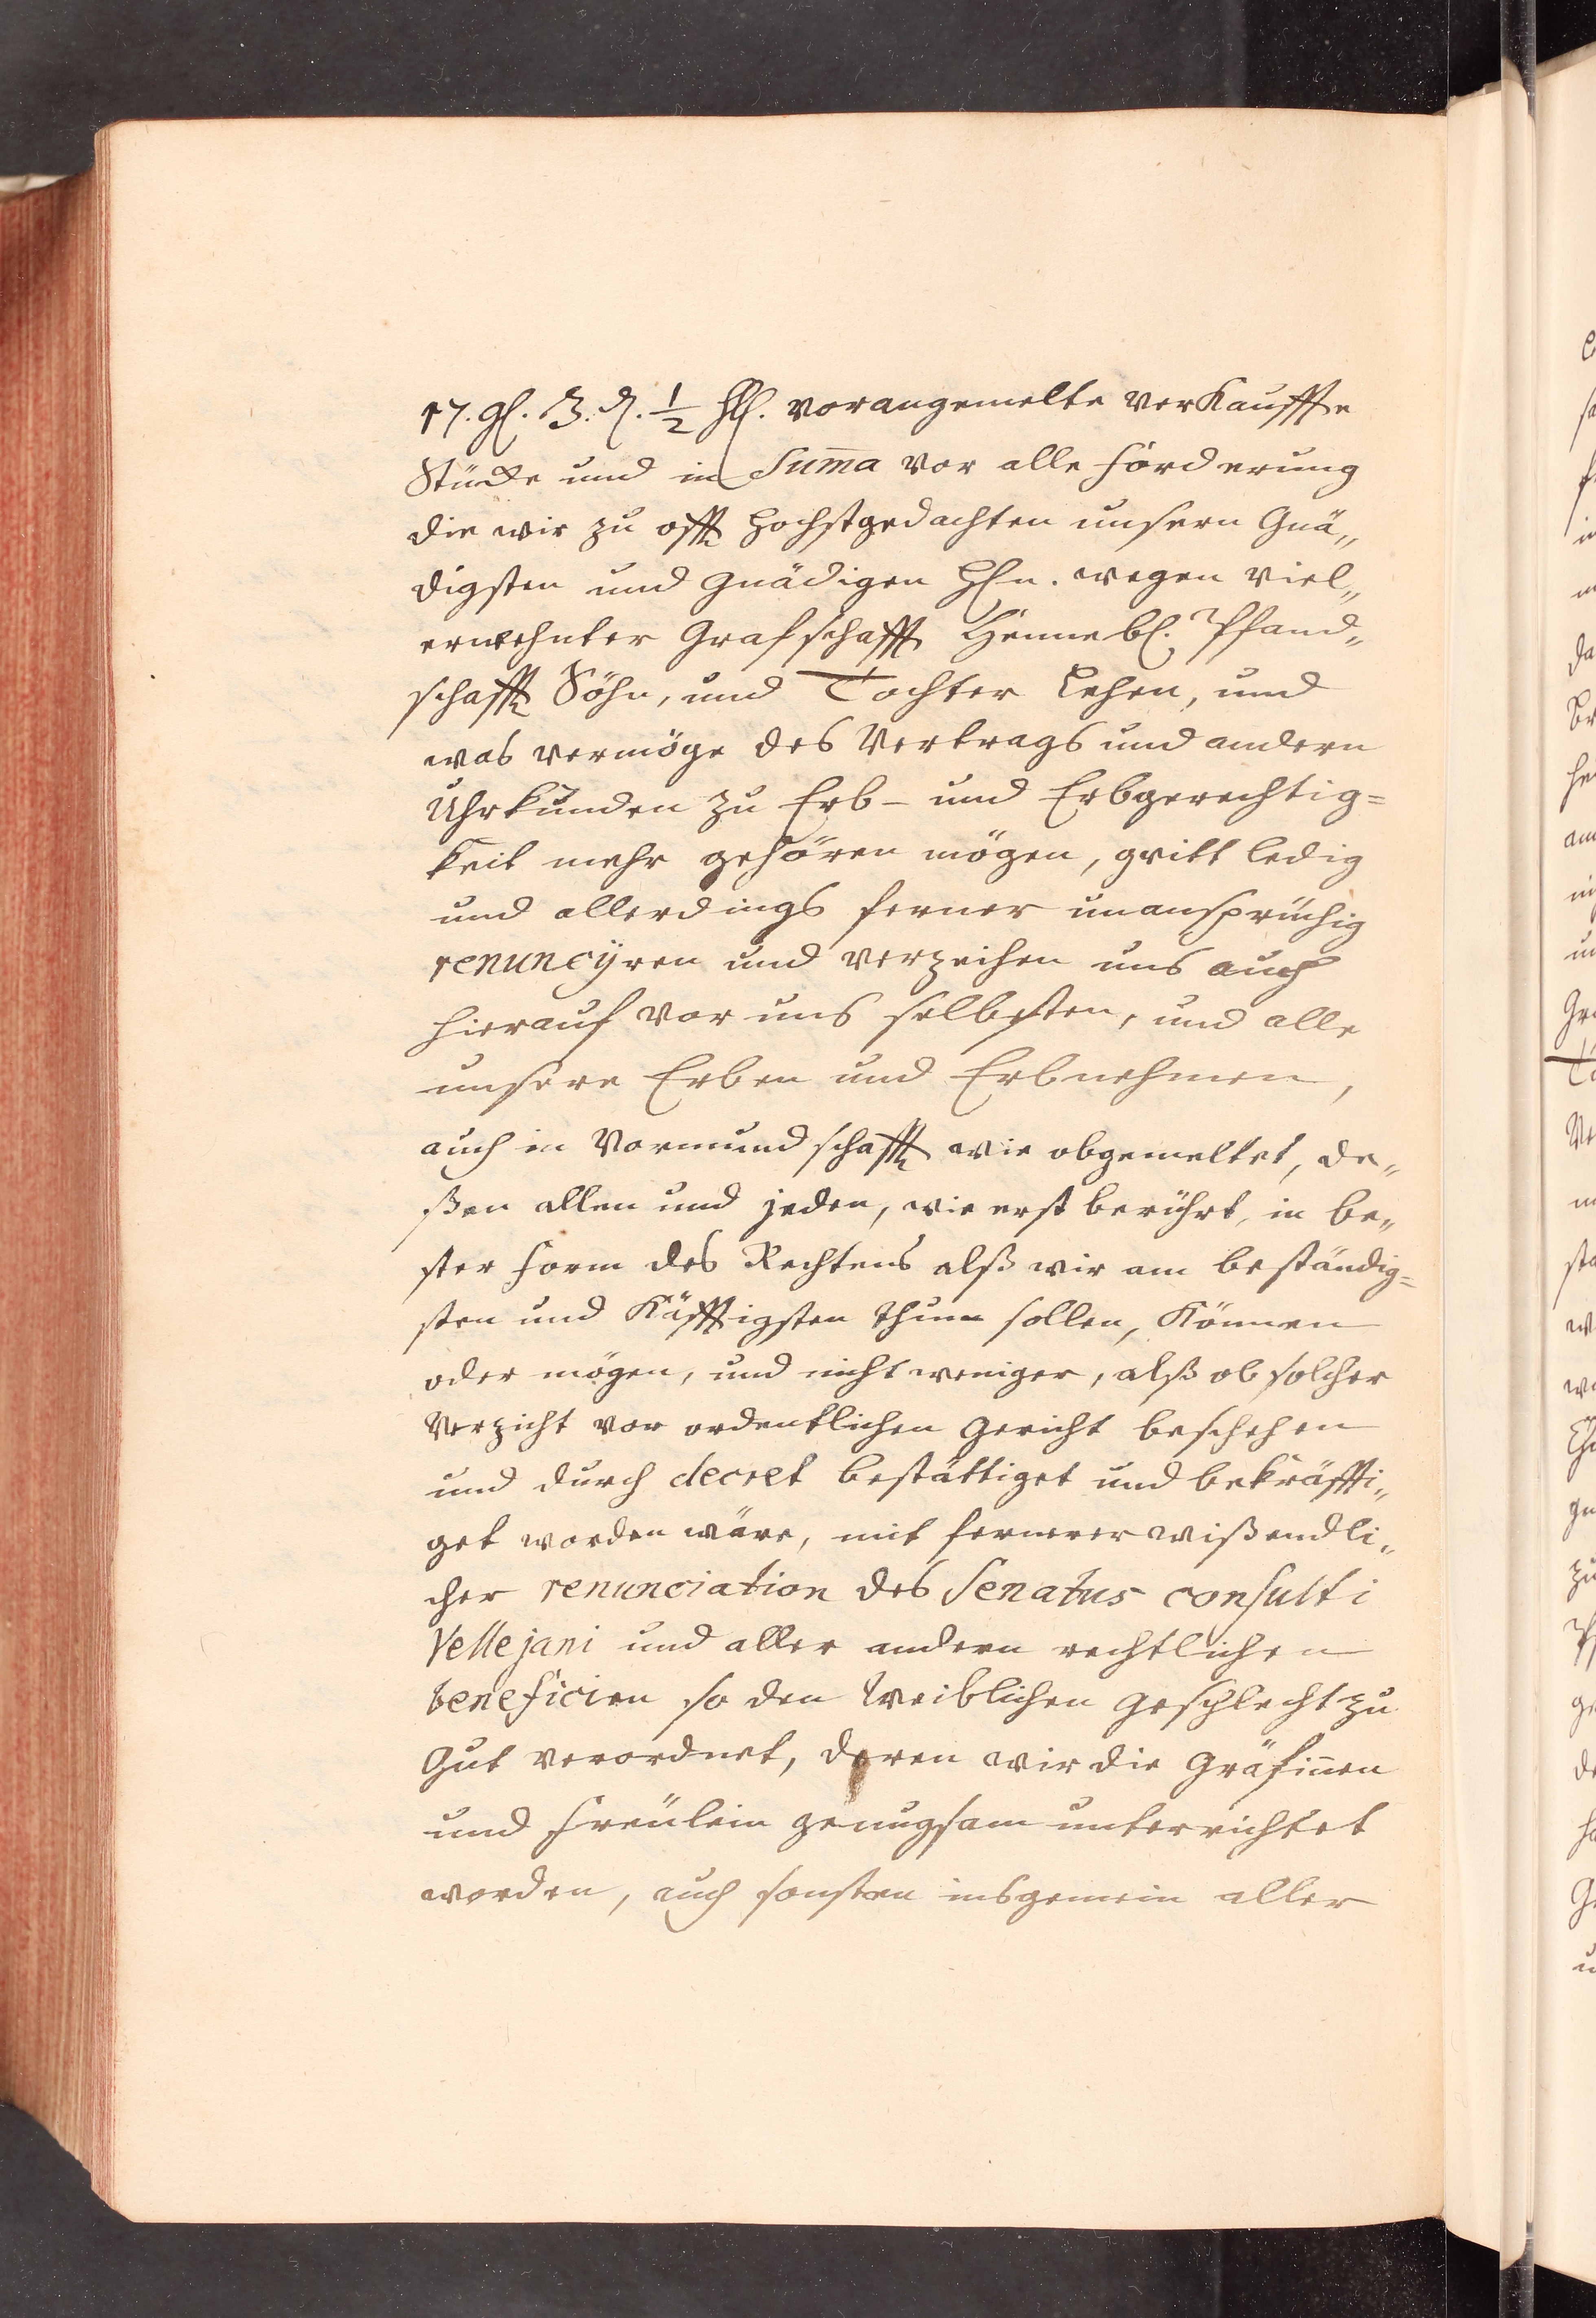 17. gl. 3. ₰. ½ hll. vorangemelte verkauffte
Stücke und in Sum̄a vor alle forderung
die wir zu offt Hochstgedachten unsern Gnä„
digsten und Gnädigen Hhn. wegen viel„
erwehnter Grafschafft Hennebl. Pfand„
schafft Söhn, und Tochter Lehen, und
was vermöge des Vertrags und andern
Uhrkunden zu Erb- und Erbgerechtig=
keit mehr gehören mögen, qvitt ledig
und allerdings ferner unansprüchig
renuncÿren und verzeihen uns auch
hierauf vor uns selbsten, und alle
unsere Erben und Erbnehmen,
auch in Vormundschafft wie obgemeltet, de„
ßen allen und jeden, wie erst berührt, in be„
ster form des Rechtens alß wir am beständig=
sten und Käfftigsten thun sollen, Können
oder mögen, und nicht weniger, alß ob solcher
Verzicht vor ordentlichen Gericht beschehen
und durch decret bestättiget und bekräffti„
get worden wäre, mit fernerer wißendli„
cher renunciation des Senatus consulti
Vellejani und aller andern rechtlichen
beneficien so den Weiblichen Geschlecht zu
Gut verordnet, deren wir die Gräfinnen
und freülein genugsam unterrichtet
worden, auch sonsten insgemein aller